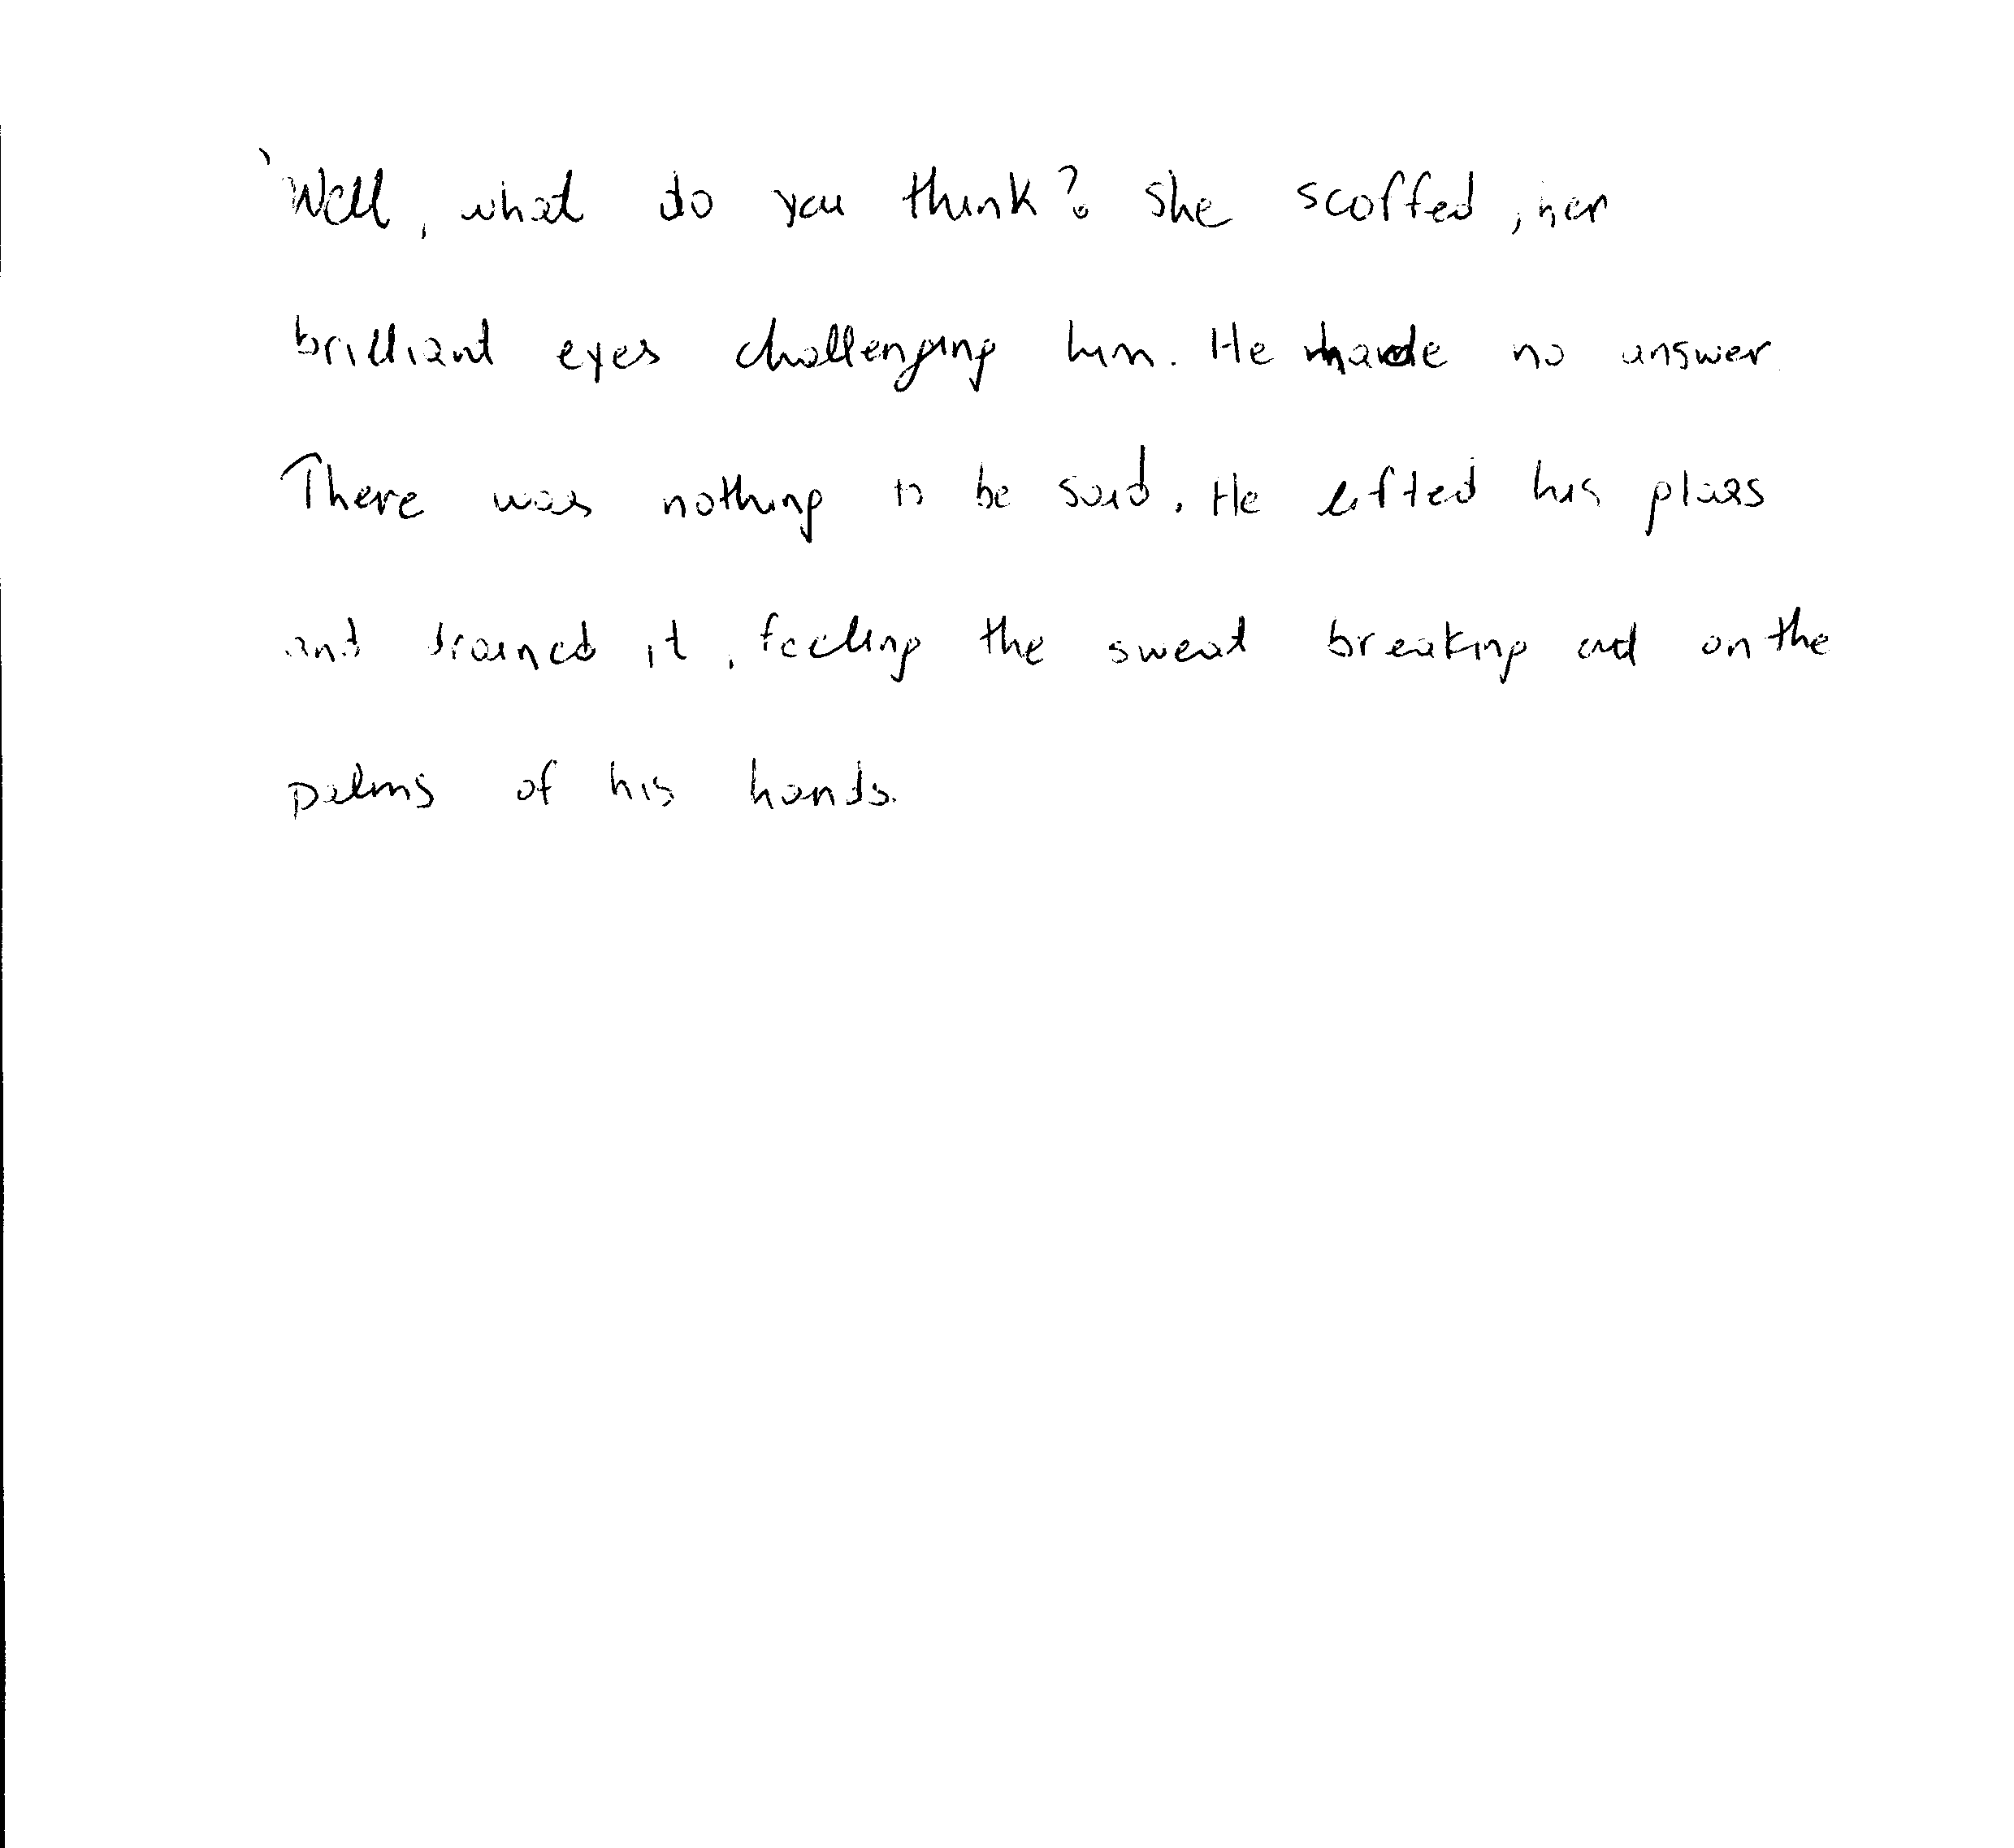 'Well, what do you think? She scoffed, her
brilliant eyes challenging him. He made no answer.
There was nothing to be said. He lifted his glass
and drained it, feeling the sweat breaking out on the
palms of his hands.